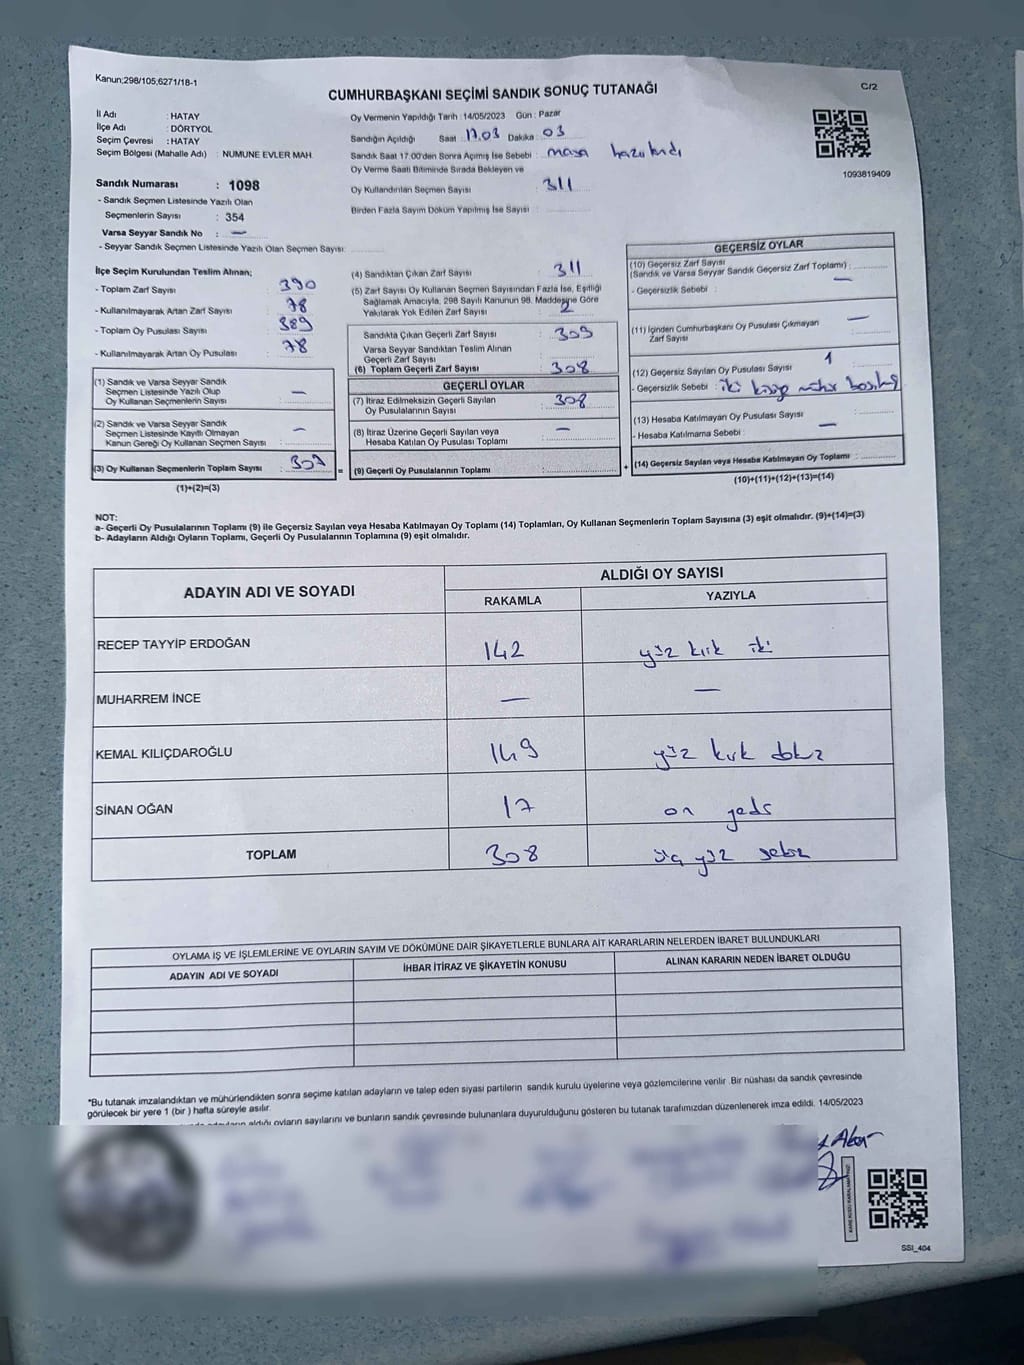 Kanun;298/105;6271/18-1
C/2
CUMHURBAŞKANI SEÇİMİ SANDIK SONUÇ TUTANAĞI
İl Adı : HATAY
İlçe Adı : DÖRTYOL
Seçim Çevresi : HATAY
Seçim Bölgesi (Mahalle Adı) : NUMUNE EVLER MAH
Sandık Numarası : 1098
- Sandık Seçmen Listesinde Yazılı Olan
Seçmenlerin Sayısı : 354
Varsa Seyyar Sandık No : —
- Seyyar Sandık Seçmen Listesinde Yazılı Olan Seçmen Sayısı:
Oy Vermenin Yapıldığı Tarih : 14/05/2023 Gün : Pazar
Sandığın Açıldığı Saat 17.03 Dakika : 03
Sandık Saat 17:00'den Sonra Açımış İse Sebebi : masa hazırlandı
Oy Verme Saati Bitiminde Sırada Bekleyen ve
Oy Kullandırılan Seçmen Sayısı : 311
Birden Fazla Sayım Döküm Yapılmış İse Sayısı :
1093819409
İlçe Seçim Kurulundan Teslim Alınan;
- Toplam Zarf Sayısı : 390
- Kullanılmayarak Artan Zarf Sayısı : 78
- Toplam Oy Pusulası Sayısı : 389
- Kullanılmayarak Artan Oy Pusulası : 78
(1) Sandık ve Varsa Seyyar Sandık
Seçmen Listesinde Yazılı Olup
Oy Kullanan Seçmenlerin Sayısı : —
(2) Sandık ve Varsa Seyyar Sandık
Seçmen Listesinde Kayıtlı Olmayan
Kanun Gereği Oy Kullanan Seçmen Sayısı : —
(3) Oy Kullanan Seçmenlerin Toplam Sayısı : 309
(1)+(2)=(3)
(4) Sandıktan Çıkan Zarf Sayısı : 311
(5) Zarf Sayısı Oy Kullanan Seçmen Sayısından Fazla İse, Eşitliği
Sağlamak Amacıyla, 298 Sayılı Kanunun 98. Maddesine Göre
Yakılarak Yok Edilen Zarf Sayısı : 2
Sandıkta Çıkan Geçerli Zarf Sayısı : 309
Varsa Seyyar Sandıktan Teslim Alınan
Geçerli Zarf Sayısı
(6) Toplam Geçerli Zarf Sayısı : 308
GEÇERLİ OYLAR
(7) İtiraz Edilmeksizin Geçerli Sayılan
Oy Pusulalarının Sayısı : 308
(8) İtiraz Üzerine Geçerli Sayılan veya
Hesaba Katılan Oy Pusulası Toplamı : —
= (9) Geçerli Oy Pusulalarının Toplamı :
GEÇERSİZ OYLAR
(10) Geçersiz Zarf Sayısı
(Sandık ve Varsa Seyyar Sandık Geçersiz Zarf Toplamı) :
- Geçersizlik Sebebi : —
(11) İçinden Cumhurbaşkanı Oy Pusulası Çıkmayan
Zarf Sayısı : —
(12) Geçersiz Sayılan Oy Pusulası Sayısı : 1
- Geçersizlik Sebebi : iki kişiye mühür basılmış
(13) Hesaba Katılmayan Oy Pusulası Sayısı :
- Hesaba Katılmama Sebebi : —
+ (14) Geçersiz Sayılan veya Hesaba Katılmayan Oy Toplamı :
(10)+(11)+(12)+(13)=(14)
NOT:
a- Geçerli Oy Pusulalarının Toplamı (9) ile Geçersiz Sayılan veya Hesaba Katılmayan Oy Toplamı (14) Toplamları, Oy Kullanan Seçmenlerin Toplam Sayısına (3) eşit olmalıdır. (9)+(14)=(3)
b- Adayların Aldığı Oyların Toplamı, Geçerli Oy Pusulalarının Toplamına (9) eşit olmalıdır.
ADAYIN ADI VE SOYADI
ALDIĞI OY SAYISI
RAKAMLA YAZIYLA
RECEP TAYYİP ERDOĞAN 142 yüz kırk iki
MUHARREM İNCE — —
KEMAL KILIÇDAROĞLU 149 yüz kırk dokuz
SİNAN OĞAN 17 on yedi
TOPLAM 308 üç yüz sekiz
OYLAMA İŞ VE İŞLEMLERİNE VE OYLARIN SAYIM VE DÖKÜMÜNE DAİR ŞİKAYETLERLE BUNLARA AİT KARARLARIN NELERDEN İBARET BULUNDUKLARI
ADAYIN ADI VE SOYADI İHBAR İTİRAZ VE ŞİKAYETİN KONUSU ALINAN KARARIN NEDEN İBARET OLDUĞU
*Bu tutanak imzalandıktan ve mühürlendikten sonra seçime katılan adayların ve talep eden siyasi partilerin sandık kurulu üyelerine veya gözlemcilerine verilir .Bir nüshası da sandık çevresinde
görülecek bir yere 1 (bir ) hafta süreyle asılır.
aldığı oyların sayılarını ve bunların sandık çevresinde bulunanlara duyurulduğunu gösteren bu tutanak tarafımızdan düzenlenerek imza edildi. 14/05/2023
SSI_404